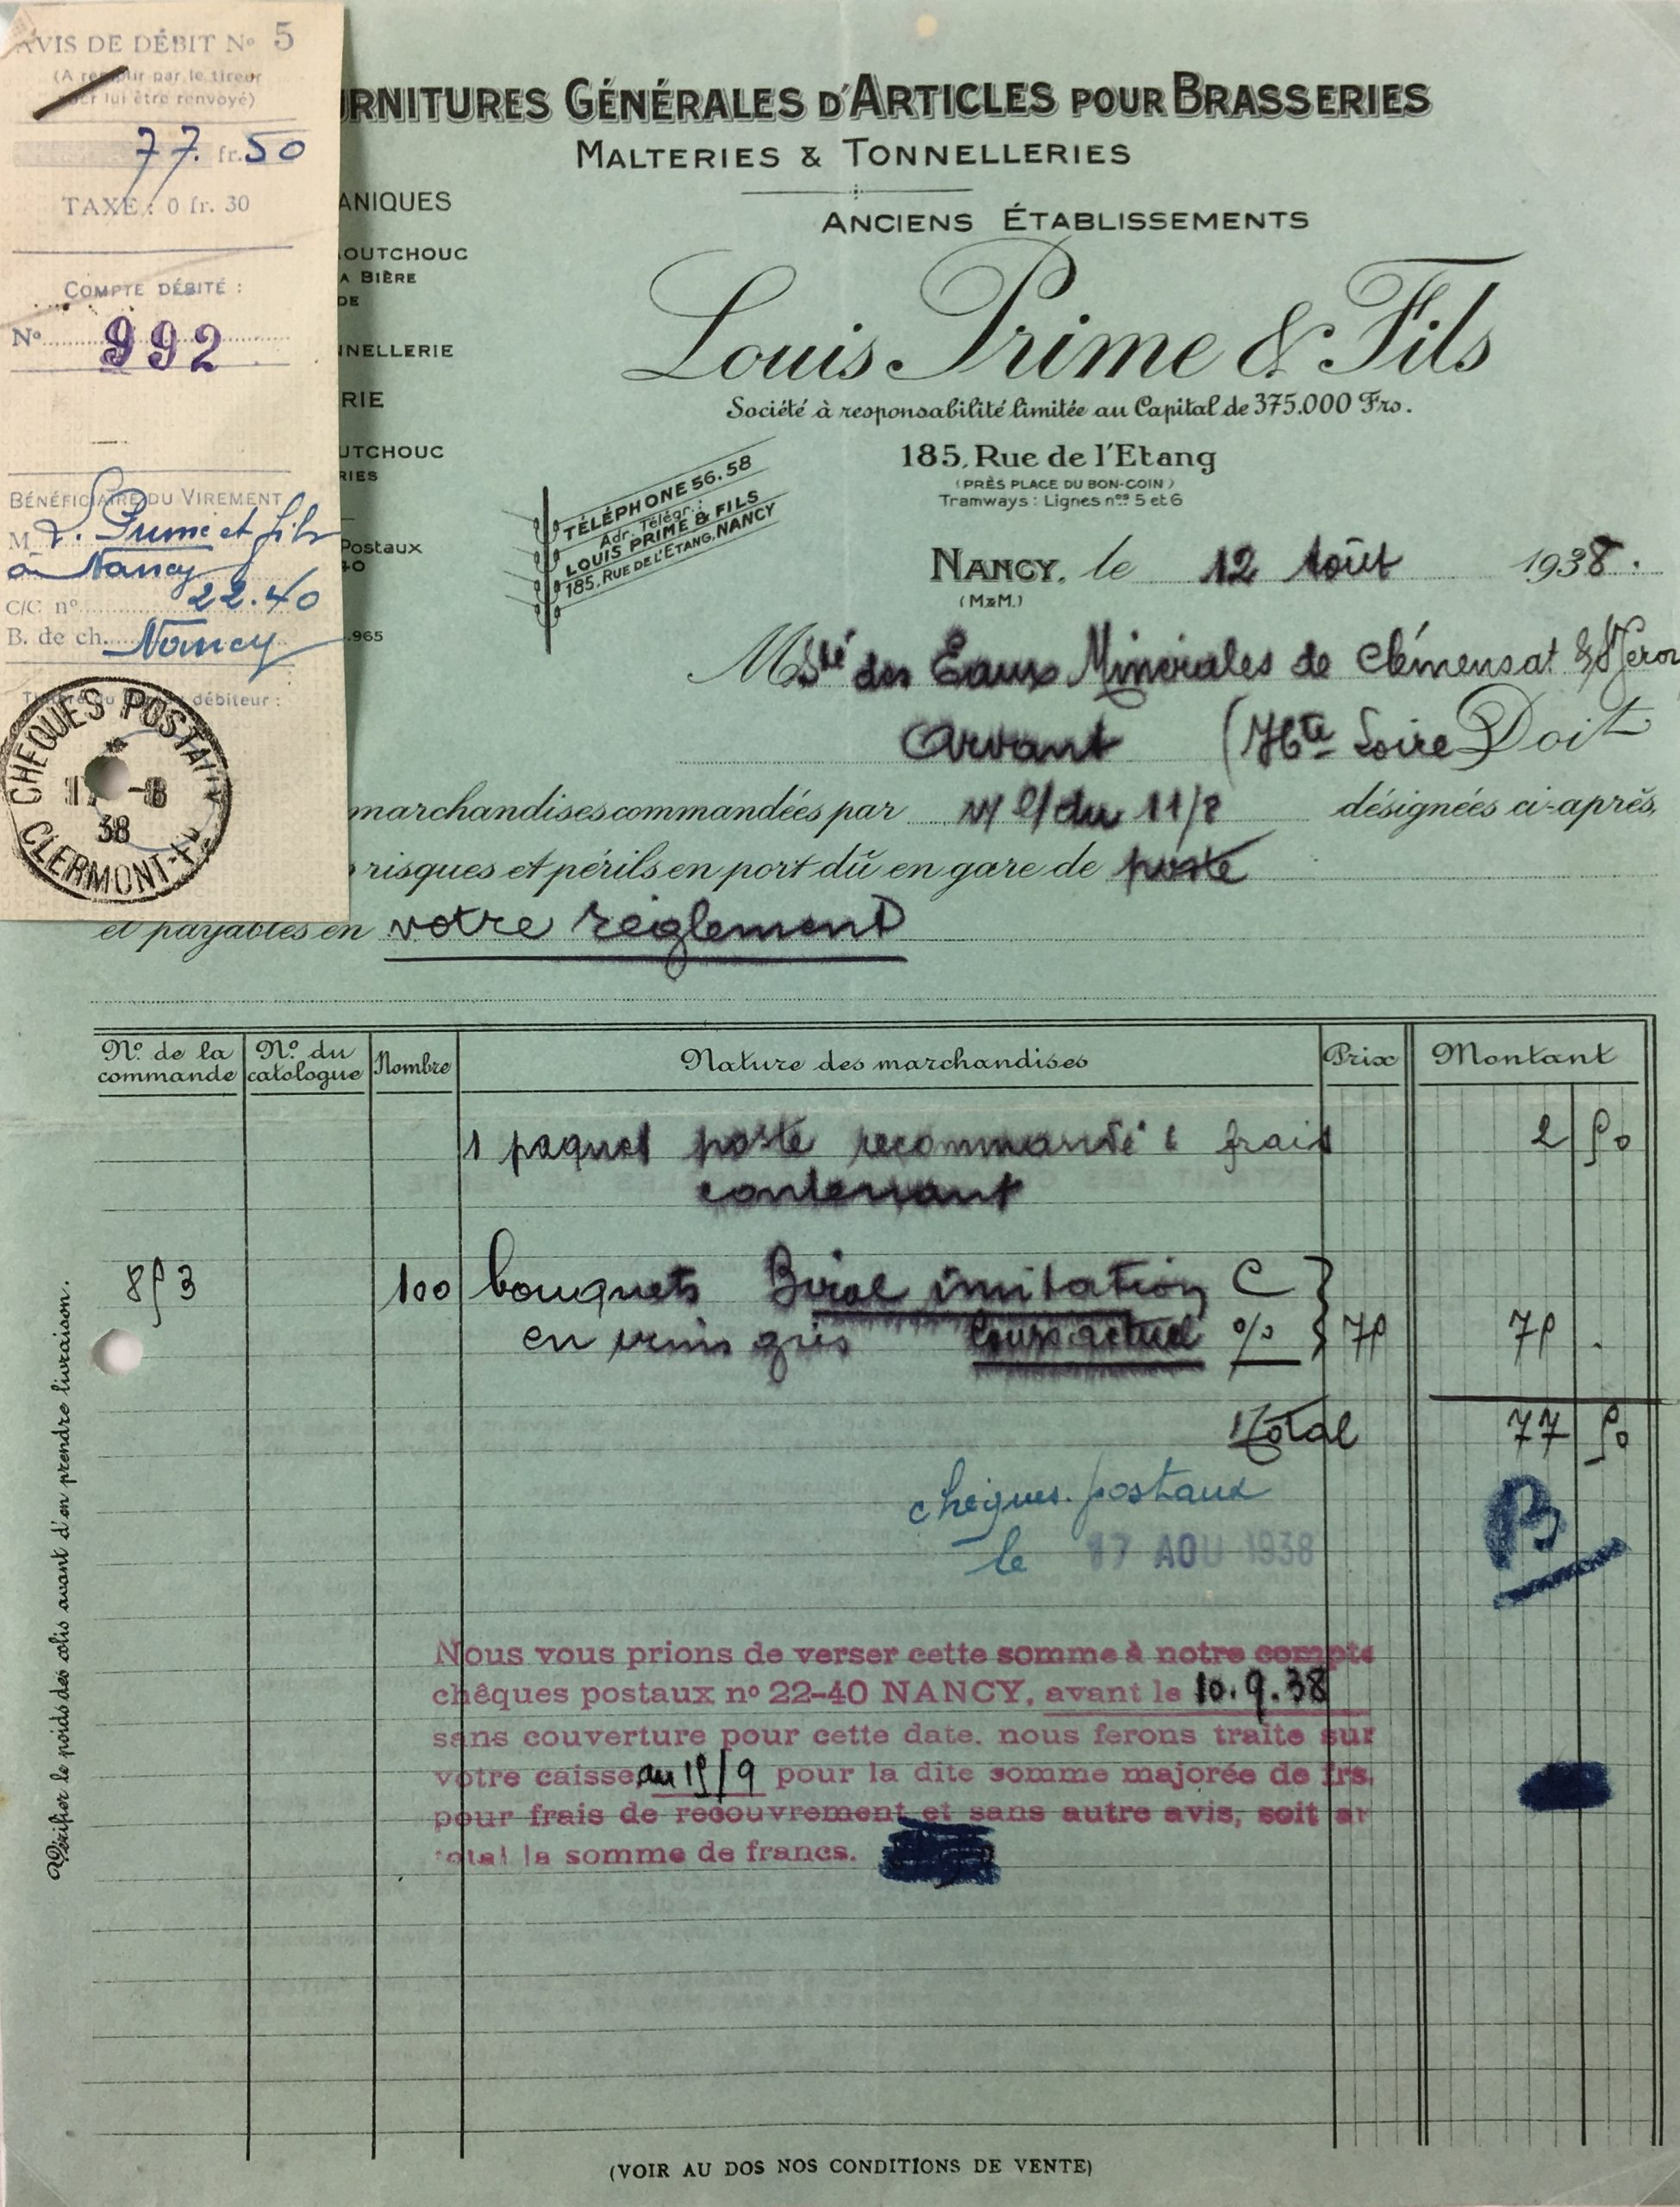 AVIS DE DÉBIT No 5
(A remplir par le tireur
pour lui être renvoyé)
77. fr. 50
TAXE : 0 fr. 30
COMPTE DÉBITÉ :
No 992
BÉNÉFICIAIRE DU VIREMENT
M L. Prime et fils
à Nancy
C/C no 22.40
B. de ch. Nancy
débiteur :
CHÈQUES POSTAUX
-8
38
CLERMONT-FD
URNITURES GÉNÉRALES D'ARTICLES POUR BRASSERIES
MALTERIES & TONNELLERIES
ANIQUES
OUTCHOUC
A BIÈRE
DE
NNELLERIE
RIE
UTCHOUC
RIES
Postaux
40
.965
ANCIENS ÉTABLISSEMENTS
Louis Prime & Fils
Société à responsabilité limitée au Capital de 375.000 Frs.
185, Rue de l'Etang
(PRÈS PLACE DU BON-COIN)
Tramways : Lignes nos 5 et 6
TÉLÉPHONE 56.58
Adr. Télégr. :
LOUIS PRIME & FILS
185, RUE DE L'ETANG, NANCY
NANCY, le 12 Août 1938.
(M&M.)
M Sté des Eaux Minérales de Clémensat &
Arvant (Hte Loire) Doit
marchandises commandées par v/ l/ du 11/8 désignées ci-après,
risques et périls en port dû en gare de poste
et payables en votre règlement
No de la commande
No du catologue
Nombre
Nature des marchandises
Prix
Montant
1 paquet poste recommandé & frais 2 50
contenant
853 100 bouquets Biral imitation C
en vrais gris Cours actuel % 75 75 .
Total 77 50
chèques postaux
le 17 AOU 1938
B
Nous vous prions de verser cette somme à notre compte
chêques postaux no 22-40 NANCY, avant le 10.9.38
sans couverture pour cette date, nous ferons traite sur
votre caisse au 15/9 pour la dite somme majorée de frs.
pour frais de recouvrement et sans autre avis, soit au
total la somme de francs.
Vérifier le poids des colis avant d'en prendre livraison.
(VOIR AU DOS NOS CONDITIONS DE VENTE)